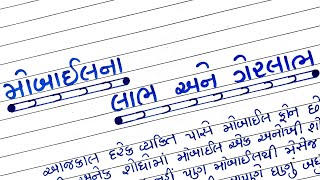 મોબાઈલના
લાભ અને ગેરલાભ
આજકાલ દરેક વ્યક્તિ પાસે મોબાઈલ ફોન છે
અનેક શોધોમાં મોબાઈલ એક અનોખી શો
પણ મોબાઈલથી મેસેજ
ઘણું બધુ